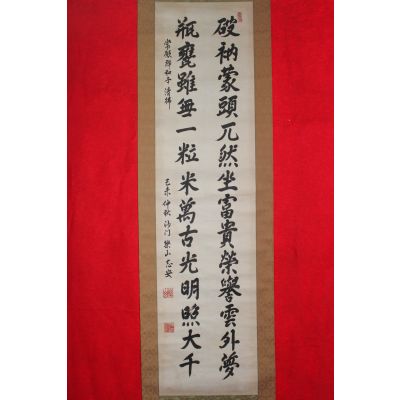 破衲蒙頭兀然坐富貴榮譽雲外夢
瓶甕雖無一粒米萬古光明照大千
禪和子
己未仲秋沙門樂山志安